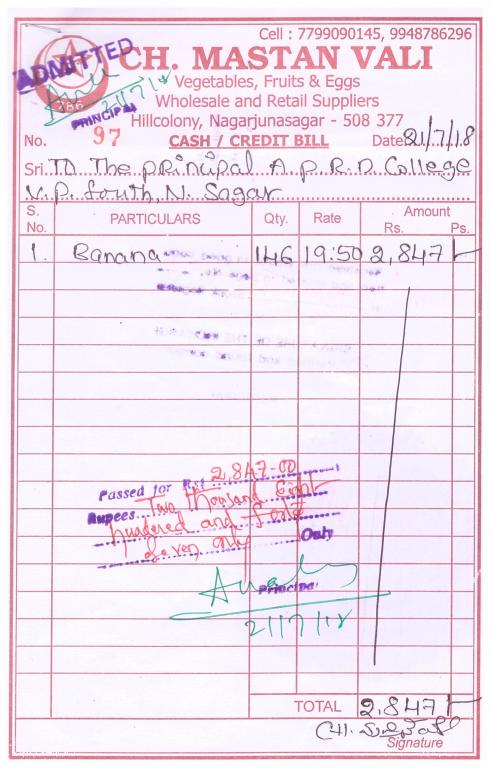 Cell : 7799090145, 9948786296
CH. MASTAN VALI
ADMITTED
786
PRINCIPAL
21/7/18
Vegetables, Fruits & Eggs
Wholesale and Retail Suppliers
Hillcolony, Nagarjunasagar - 508 377
No. 97 CASH / CREDIT BILL Date 21/7/18
Sri To The principal A.P.R.D College
V.P. South, N. Sagar
S. No. PARTICULARS Qty. Rate Amount Rs. Ps.
1. Banana 146 19:50 2,847
Passed for Rs. 2,847-00
Rupees Two thousand Eight
hundered and forty
Seven only Only
Principal
21/7/18
TOTAL 2,847
CH.
Signature